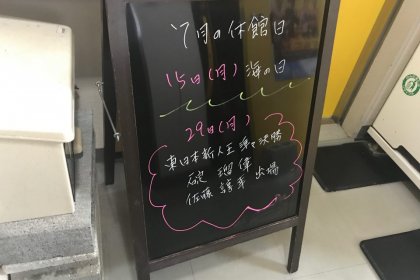 7月の休館日
15日(月)海の日
29日(月)
東日本新人王準々決勝
碇 瑠偉
佐藤 諒幸 出場